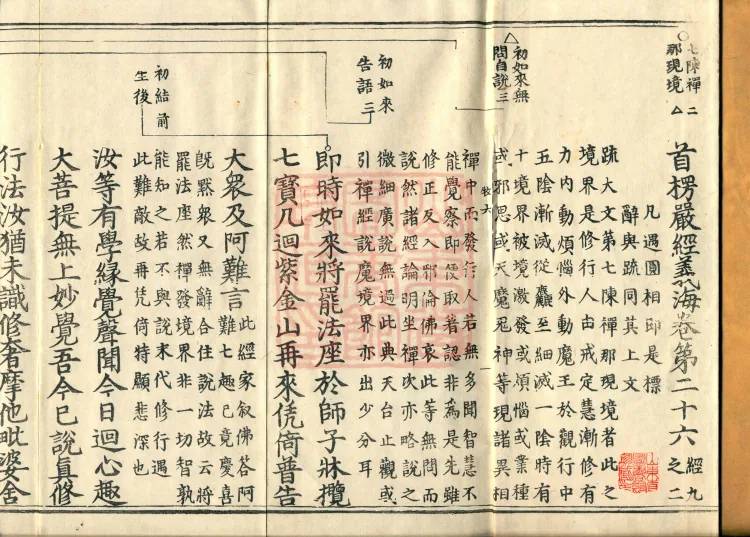 七陳禪二
那現境
首楞嚴經義海卷第二十六 經九之二
凡遇圓相即是標
辭與疏同其上文
疏大文第七陳禪那現境者此之
境界是修行人由戒定慧漸修有
力内動煩惱外動魔王於觀行中
五陰漸滅從麤至細滅一陰時有
十境界被境激發或煩惱或業種
或邪思或天魔鬼神等現諸異相
初如來無
問自說三
禪中而發行人若無多聞智慧不
能覺察即便取著認非為是先雖
修正反入邪倫佛哀此等無問而
說然諸經論明坐禪次亦略說之
微細廣說無過此典天台止觀或
引禪經說魔境界亦出少分耳
初如來
告語三
即時如來將罷法座於師子牀攬
七寶几迴紫金山再來凭倚普告
大眾及阿難言此經家叙佛荅阿
難七趣已竟慶喜
既黙眾又無辭合住說法故云將
罷法座然禪發境界非一切智孰
能知之若不與說末代修行遇
此難敵故再凭倚特顯悲深也
初結前
生後
汝等有學緣覺聲聞今日迴心趣
大菩提無上妙覺吾今已說真修
行法汝猶未識修奢摩他毗婆舍